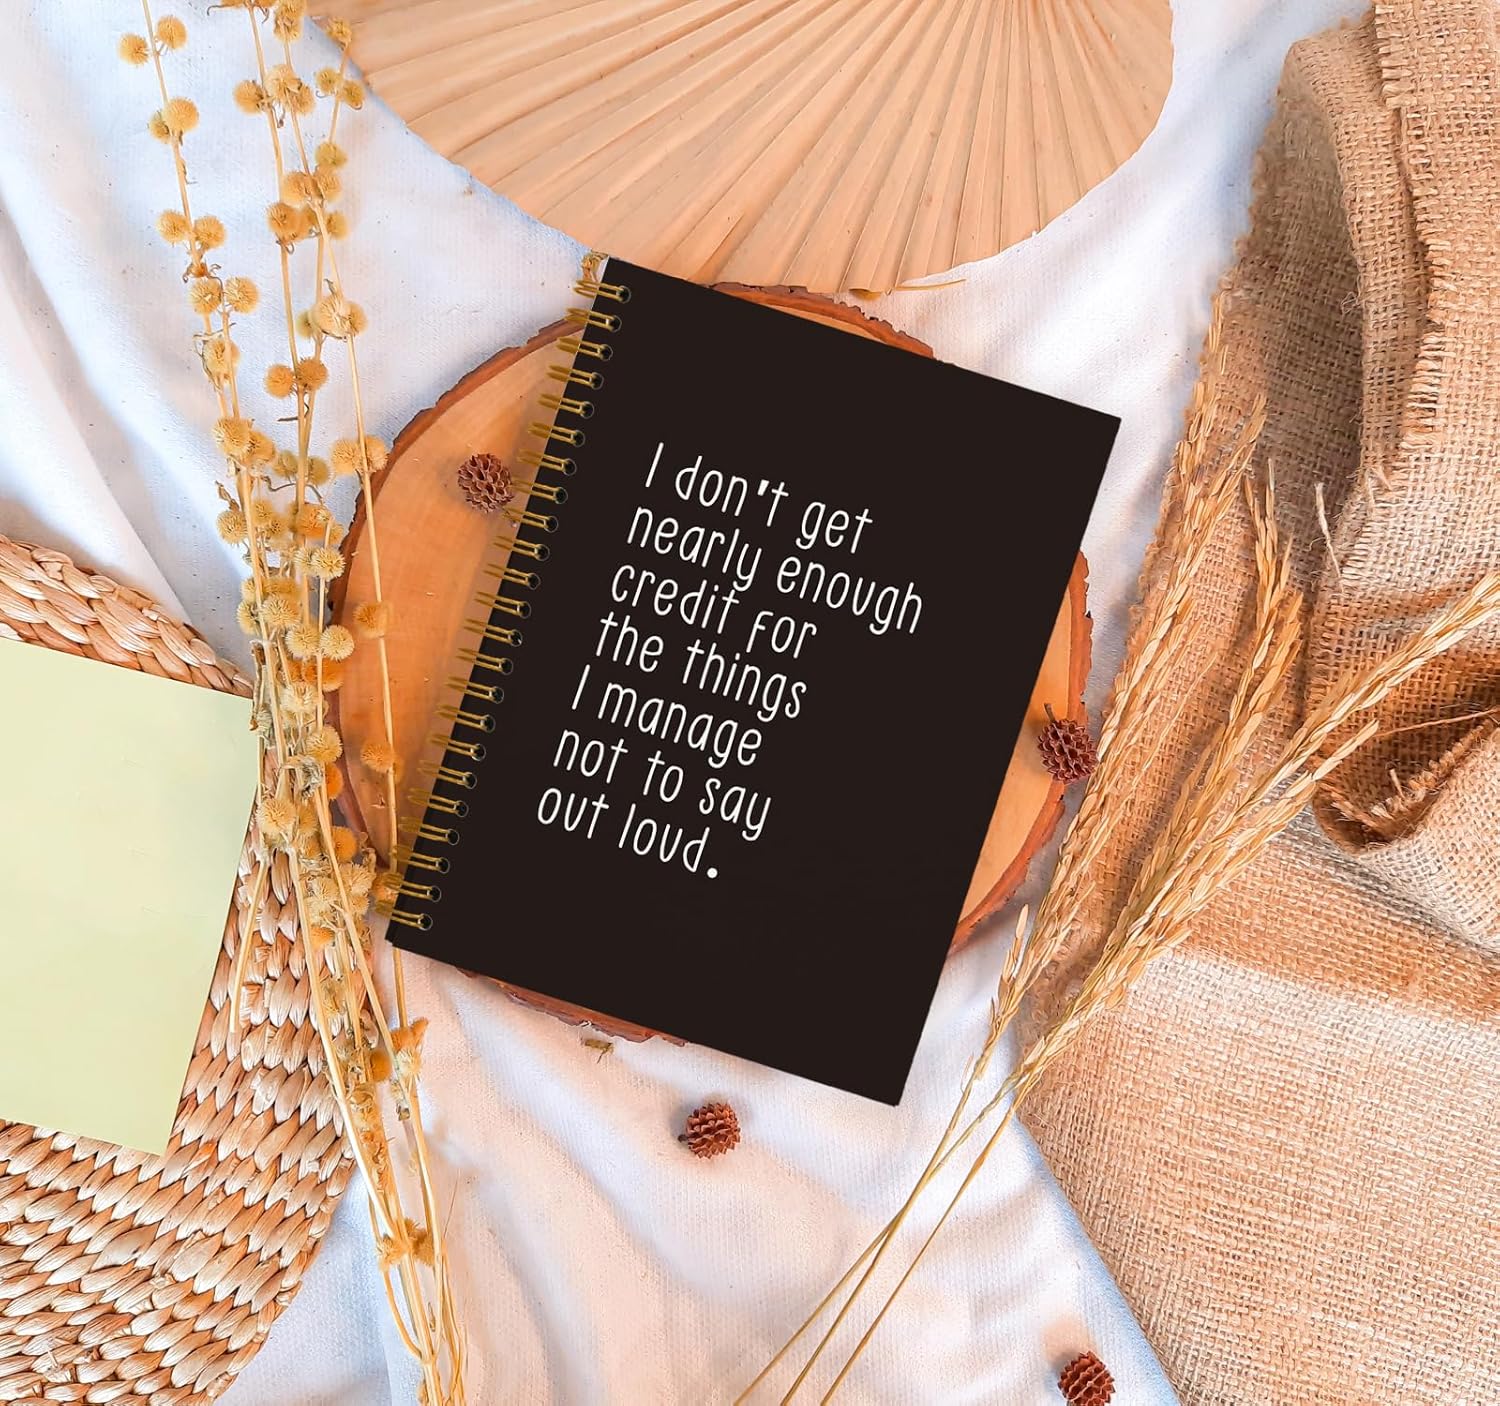 I don't get
nearly enough
credit for
the things
I manage
not to say
out loud.